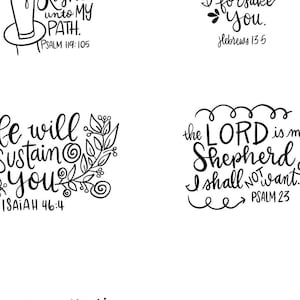 unto MY
PATH.
PSALM 119:105
forsake
You.
Hebrews 13:5
He will
Sustain
You
ISAIAH 46:4
the LORD is my
Shepherd
I shall NOT want.
PSALM 23